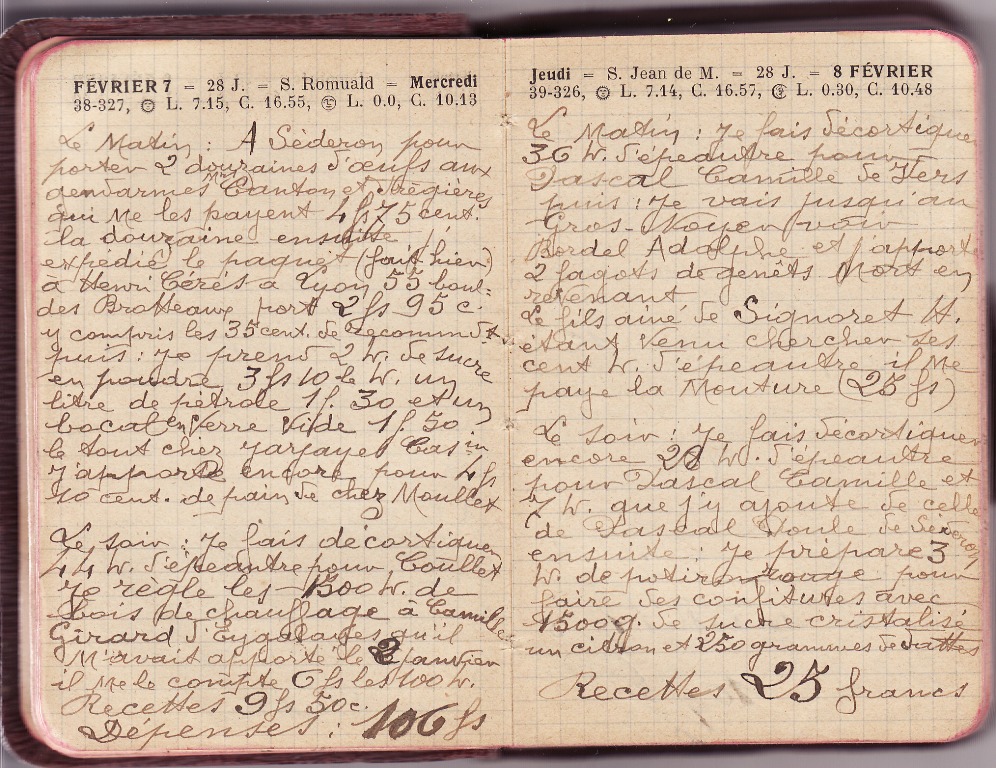 FÉVRIER 7 = 28 J. = S. Romuald = Mercredi
38-327, L. 7.15, C. 16.55, L. 0.0, C. 10.13
Le Matin : A Séderon pour
porter 2 douzaines d'œufs aux
gendarmes Canton et Mrs Frégières
qui me les payent 4 fs 75 cent.
la douzaine ensuite j'
expédie le paquet (fait hier)
à Henri Cérés à Lyon 55 boul=
des Brotteaux port 2 fs 95 c.
y compris les 35 cent. de recommdt
puis : Je prend 2 K. de sucre
en poudre 3 fs 10 le K. un
litre de pétrole 1 f. 30 et un
bocal en Verre Vide 1 f 50
le tout chez Jarjayes Casin
J'apporte encore pour 4 fs
10 cent. de pain de chez Moullet
Le soir : Je fais décortiquer
44 K. d'épeautre pour Coullet
Je règle les 1500 K. de
bois de chauffage à Camille
Girard d'Eygalayes qu'il
M'avait apporté le 2 janvier
il me le compte 6 fs les 100 K.
Recettes 9 fs 50 c.
Dépenses : 106 fs
Jeudi = S. Jean de M. = 28 J. = 8 FÉVRIER
39-326, L. 7.14, C. 16.57, L. 0.30, C. 10.48
Le Matin : Je fais décortiquer
36 K. d'épeautre pour
Pascal Camille de Vers
puis : Je vais jusqu'au
Gros-Noyer voir
Bordel Adolphe et j'apporte
2 fagots de genêts Mort en
revenant
Le fils ainé de Signoret H.
étant Venu chercher ses
cent K. d'épeautre il Me
paye la Mouture (25 fs)
Le soir : Je fais décortiquer
encore 20 K. d'épeautre
pour Pascal Camille et
7 K. que j'y ajoute de celle
de Pascal Toule de Séderon
ensuite : Je prépare 3
K. de potiron rouge pour
faire des confitures avec
1500 g. de sucre cristalisé
un citron et 250 grammes de dattes
Recettes 25 francs